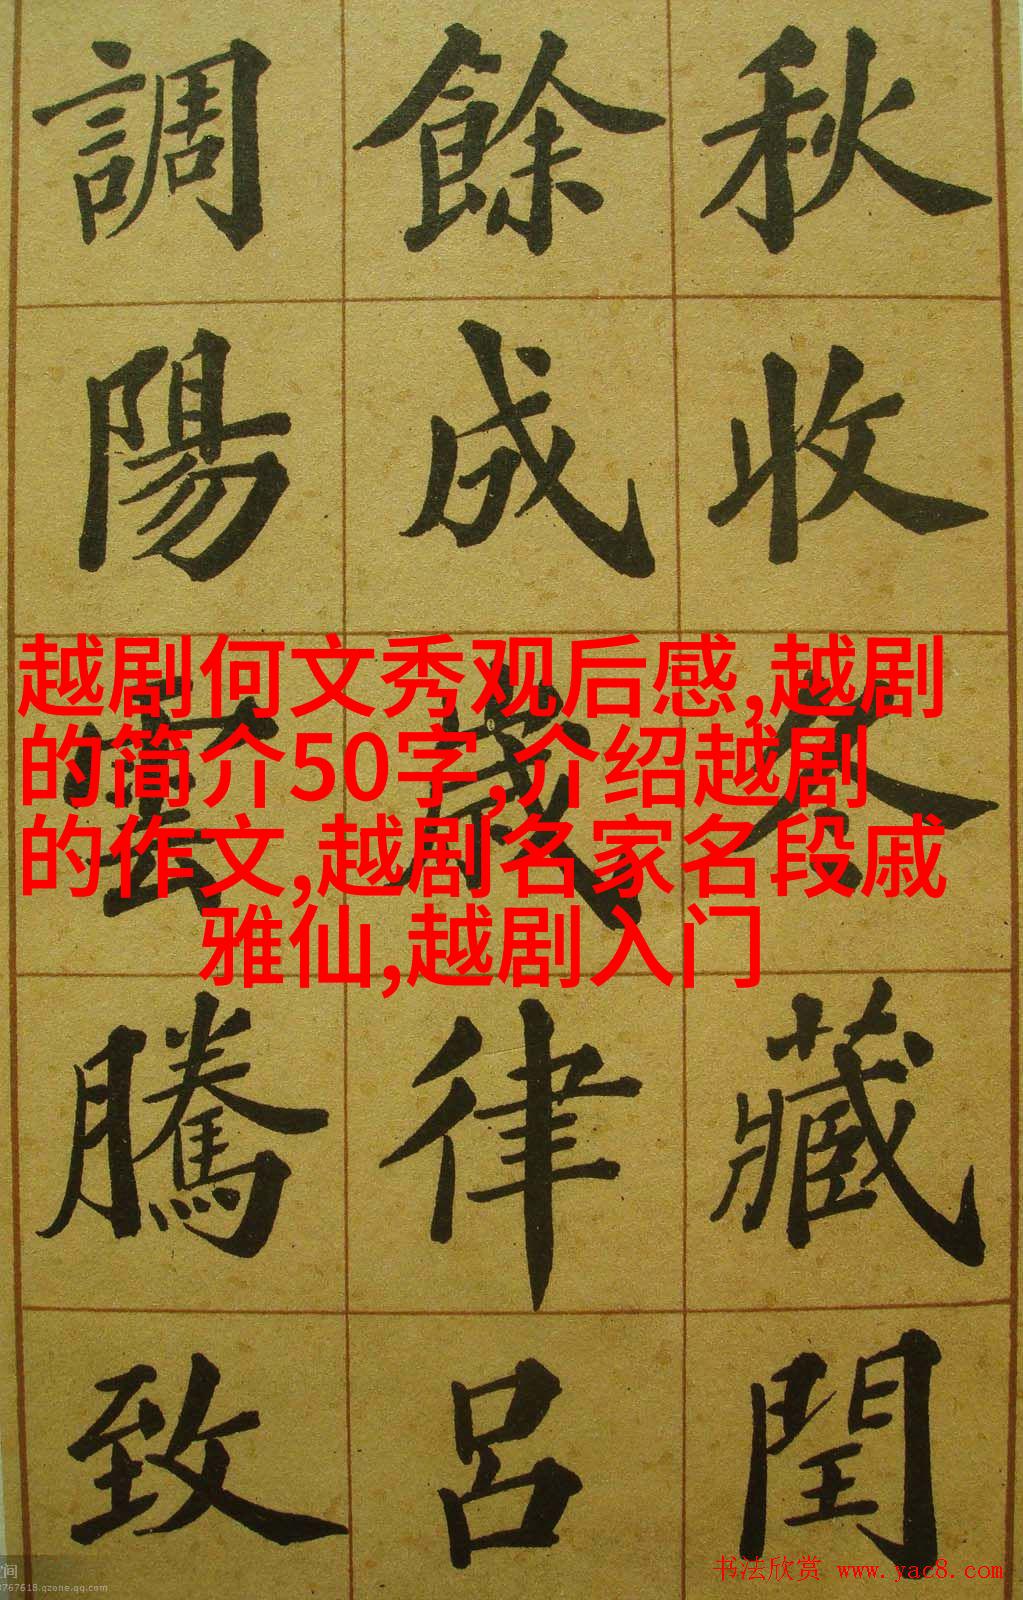 秋收冬藏閏
餘成歲律呂
調陽雲騰致
越剧何文秀观后感,越剧
的简介50字,介绍越剧
的作文,越剧名家名段戚
雅仙,越剧入门
书法欣赏 www.yac8.com
空间
8767618.qzone.qq.com